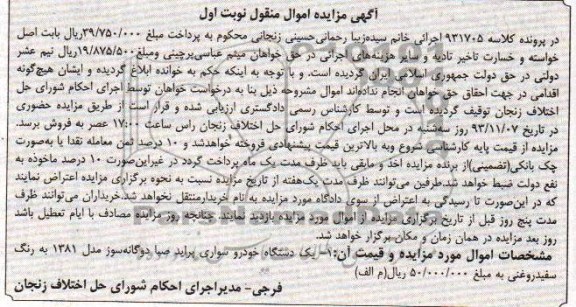 آگهی مزایده اموال منقول نوبت اول
در پرونده کلاسه ۹۳۱۷۰۵ اجرائی خانم سیده‌زیبا رحمانی‌حسینی زنجانی محکوم به پرداخت مبلغ ۳۹/۷۵۰/۰۰۰ریال بابت اصل
خواسته و خسارت تاخیر تادیه و سایر هزینه‌های اجرائی در حق خواهان میثم عباسی‌پرچینی ومبلغ۱۹/۸۷۵/۵۰۰ریال نیم عشر
دولتی در حق دولت جمهوری اسلامی ایران گردیده است. و با توجه به اینکه حکم به خوانده ابلاغ گردیده و ایشان هیچ‌گونه
اقدامی در جهت احقاق حق خواهان انجام نداده‌اند اموال مشروحه ذیل بنا به درخواست خواهان توسط اجرای احکام شورای حل
اختلاف زنجان توقیف گردیده است و توسط کارشناس رسمی دادگستری ارزیابی شده و قرار است از طریق مزایده حضوری
در تاریخ ۹۳/۱۱/۰۷ روز سه‌شنبه در محل اجرای احکام شورای حل اختلاف زنجان راس ساعت ۱۷:۰۰ عصر به فروش برسد.
مزایده از قیمت پایه کارشناسی شروع وبه بالاترین قیمت پیشنهادی فروخته خواهدشد و ۱۰ درصد ثمن معامله نقدا یا به‌صورت
چک بانکی(تضمینی)از برنده مزایده اخذ و مابقی باید ظرف مدت یک ماه پرداخت گردد در غیراین‌صورت ۱۰ درصد ماخوذه به
نفع دولت ضبط خواهد شد.طرفین می‌توانند ظرف مدت یک‌هفته از تاریخ مزایده نسبت به نحوه برگزاری مزایده اعتراض نمایند
که در این‌صورت تا رسیدگی به اعتراض از سوی دادگاه مورد مزایده به نام خریدارمنتقل نخواهد شد.خریداران می‌توانند ظرف
مدت پنج روز قبل از تاریخ برگزاری مزایده از اموال مورد مزایده بازدید نمایند. چنانچه روز مزایده مصادف با ایام تعطیل باشد
روز بعد مزایده در همان زمان و مکان برگزار خواهد شد.
مشخصات اموال مورد مزایده و قیمت آن:۱- یک دستگاه خودرو سواری پراید صبا دوگانه‌سوز مدل ۱۳۸۱ به رنگ
سفیدروغنی به مبلغ ۵۰/۰۰۰/۰۰۰ ریال(م الف)
فرجی- مدیراجرای احکام شورای حل اختلاف زنجان